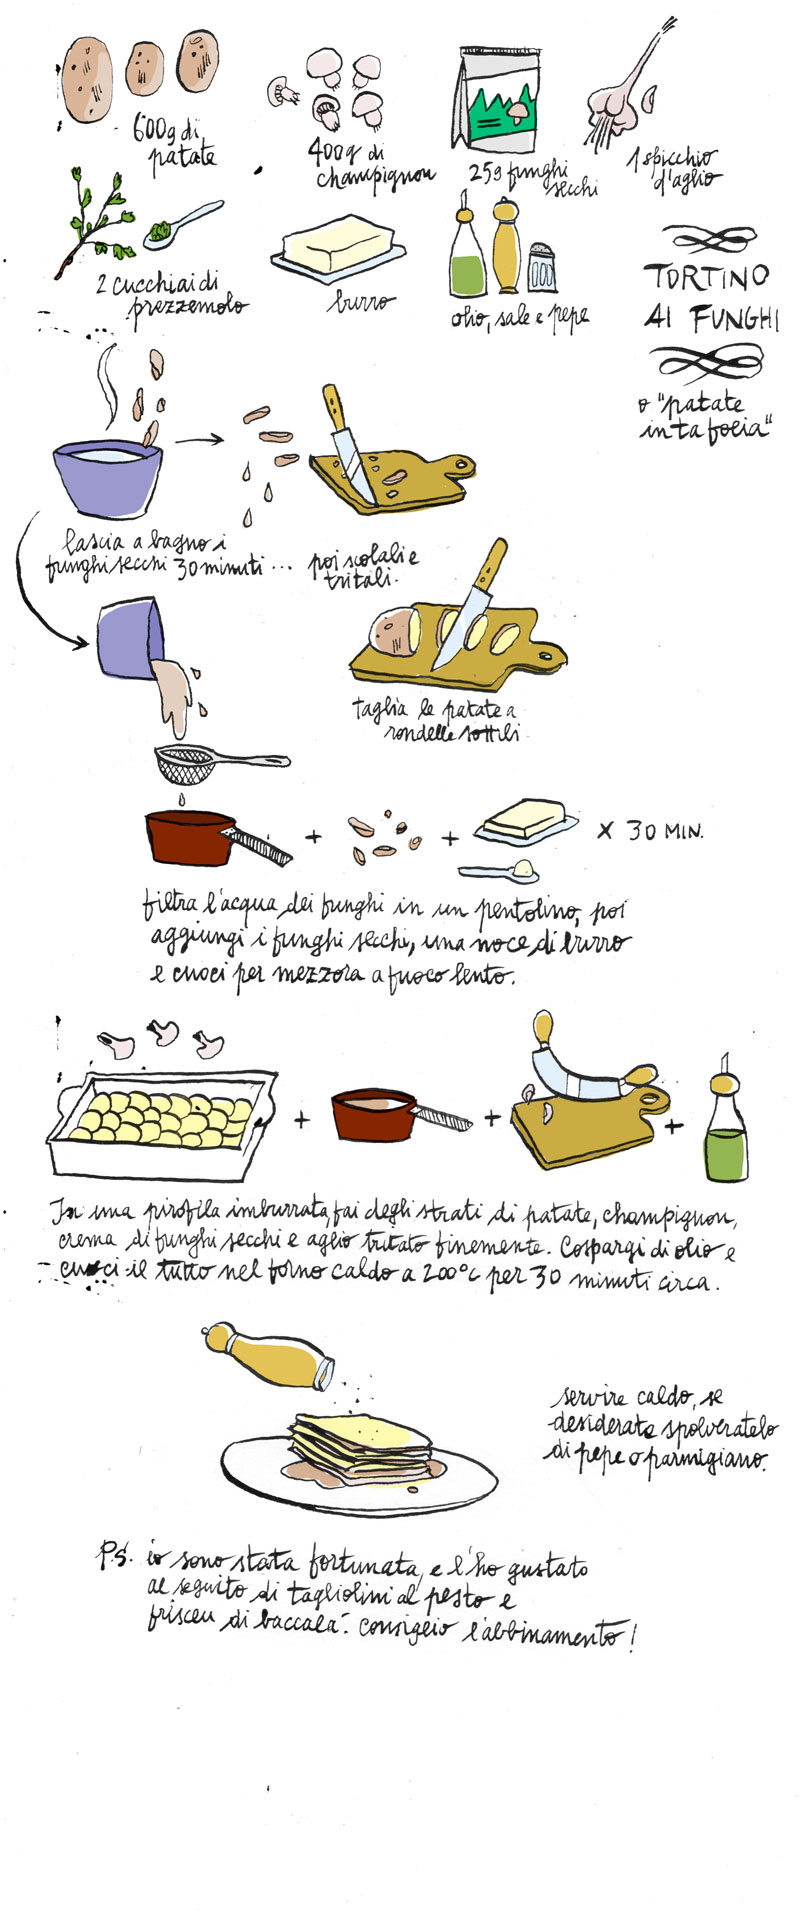 600g di
patate
400g di
champignon
25g funghi
secchi
1 spicchio
d'aglio
2 cucchiai di
prezzemolo
burro
olio, sale e pepe
TORTINO
AI FUNGHI
o "patate
in ta focia"
lascia a bagno i
funghi secchi 30 minuti ...
poi scolali e
tritali.
taglia le patate a
rondelle sottili
+ + X 30 MIN.
filtra l'acqua dei funghi in un pentolino, poi
aggiungi i funghi secchi, una noce di burro
e cuoci per mezzora a fuoco lento.
+ + +
In una pirofila imburrata, fai degli strati di patate, champignon,
crema di funghi secchi e aglio tritato finemente. Cospargi di olio e
cuoci il tutto nel forno caldo a 200°C per 30 minuti circa.
servire caldo, se
desiderate spolveratelo
di pepe o parmigiano.
P.S. io sono stata fortunata, e l'ho gustato
al seguito di tagliolini al pesto e
frisceu di baccalà. Consiglio l'abbinamento!